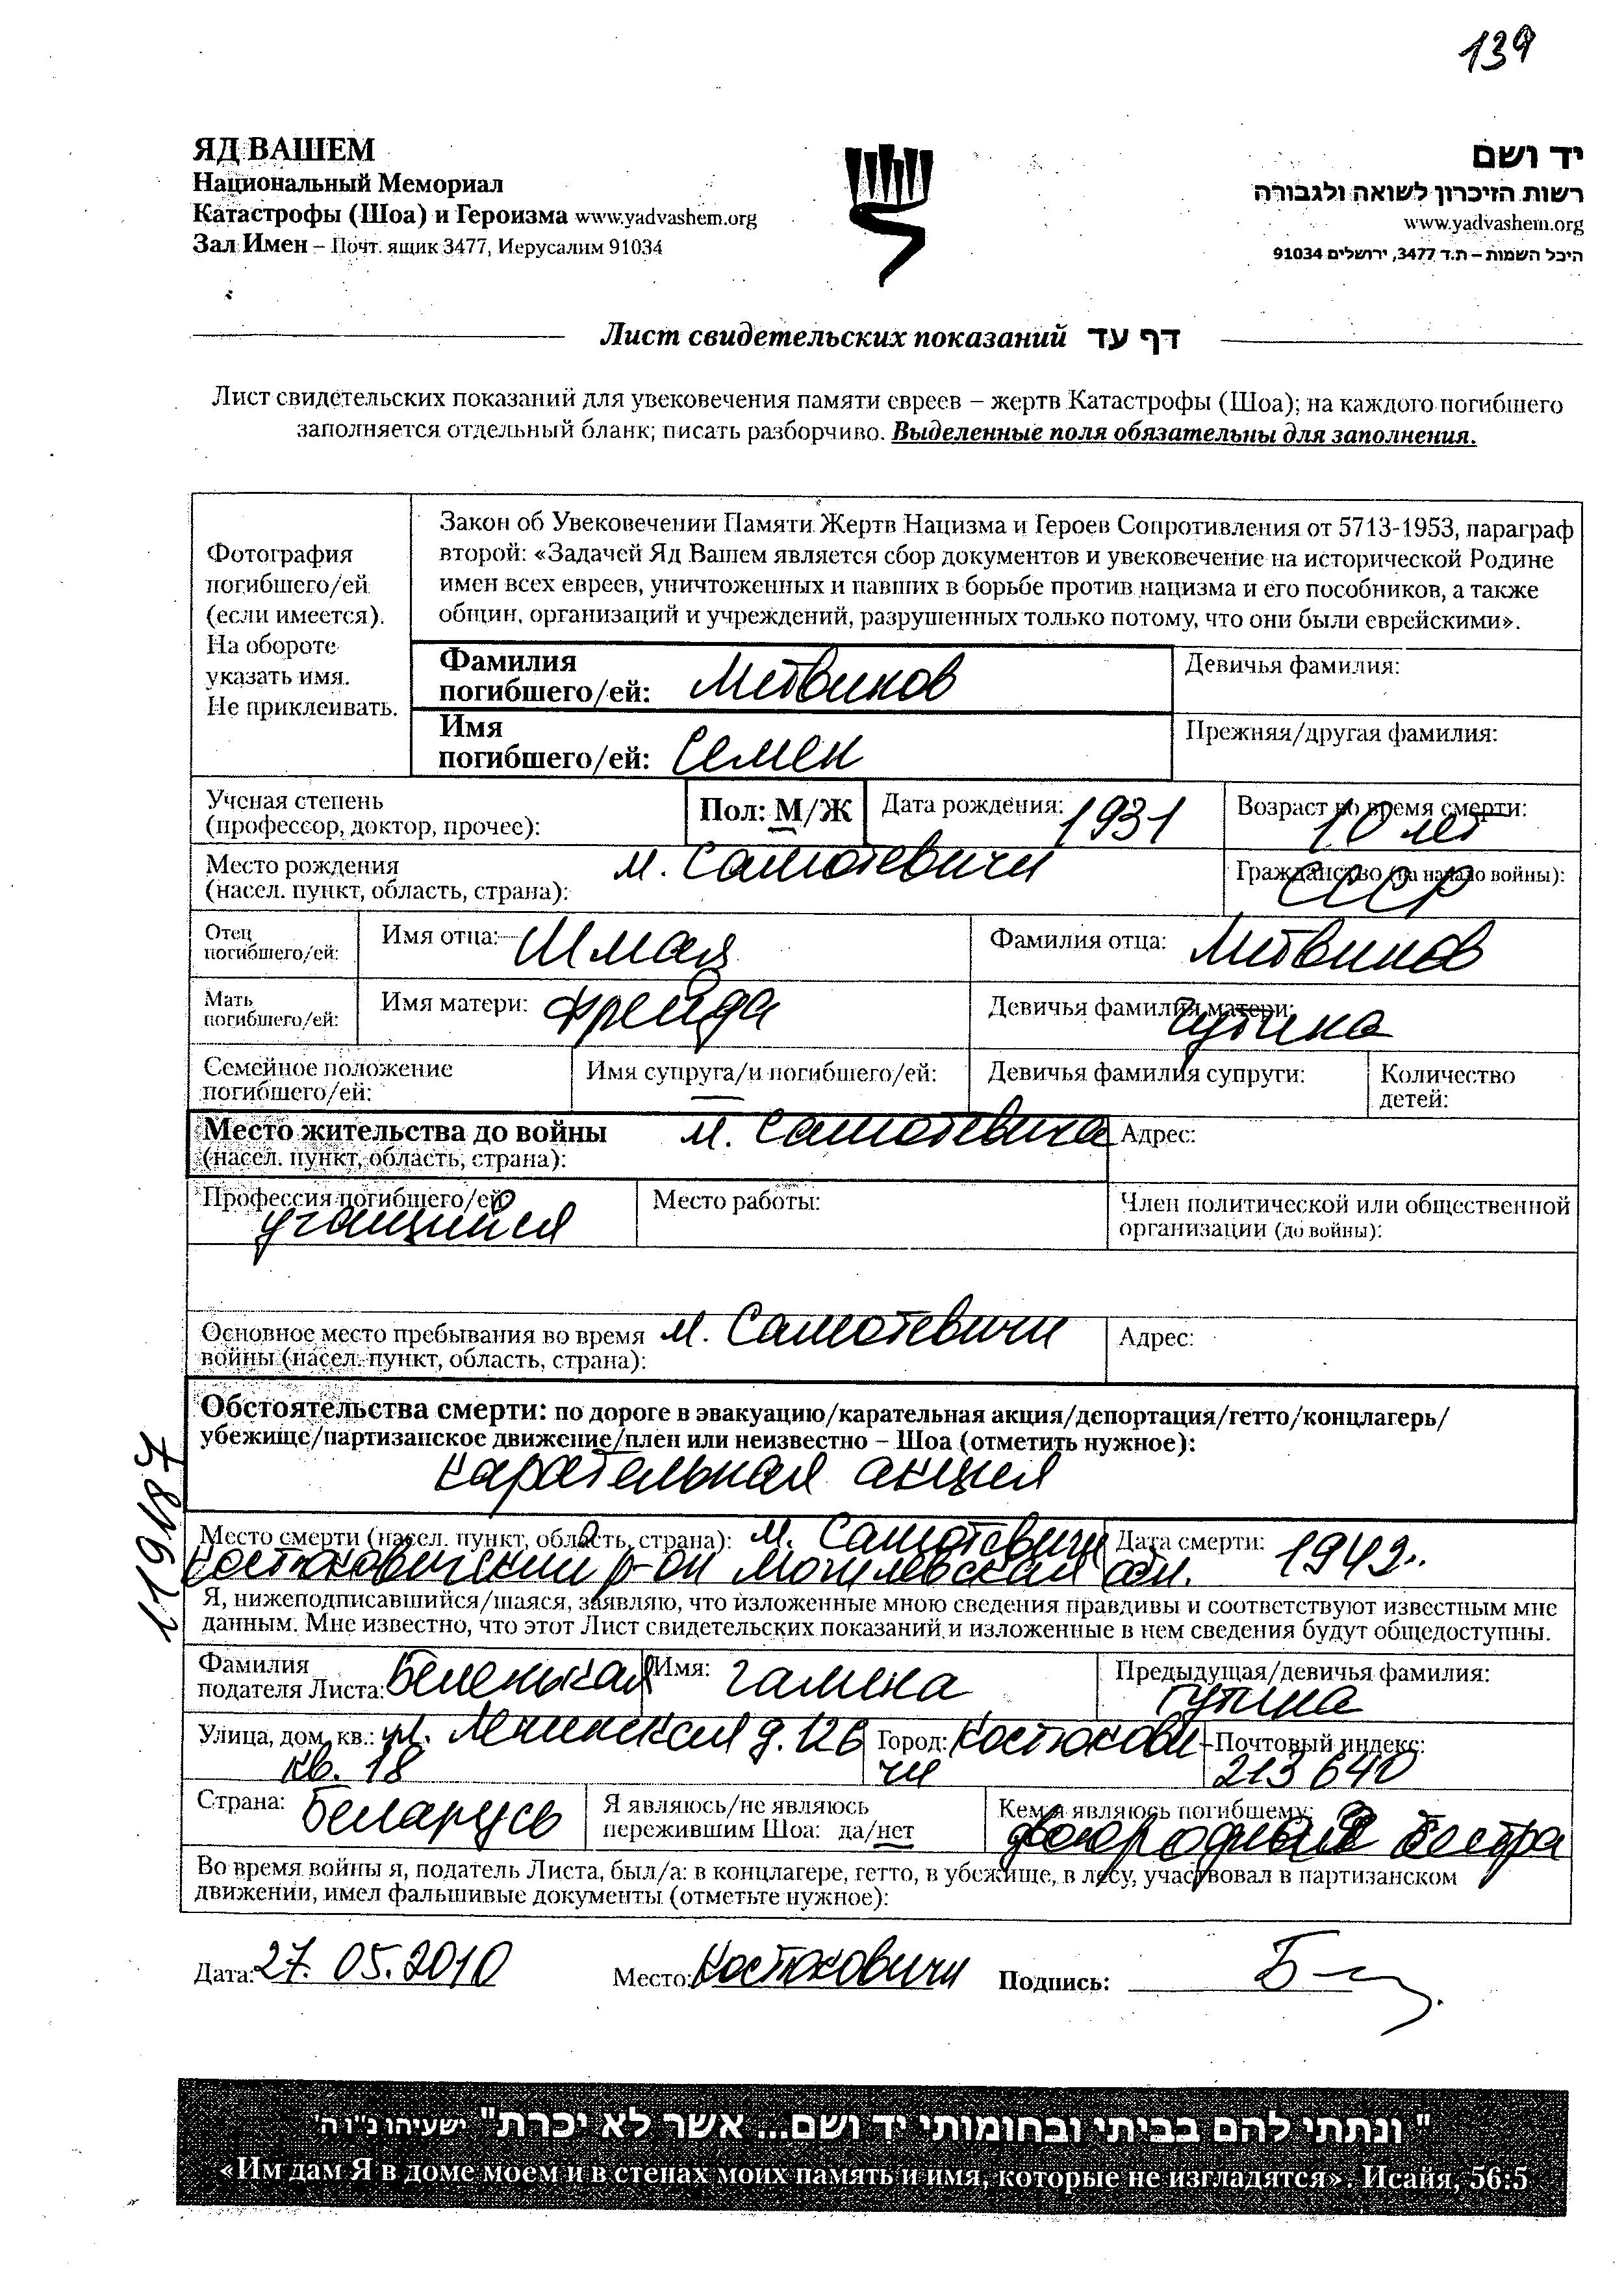 139
ЯД ВАШЕМ
Национальный Мемориал
Катастрофы (Шоа) и Героизма www.yadvashem.org
Зал Имен – Почт. ящик 3477, Иерусалим 91034
יד ושם
רשות הזיכרון לשואה ולגבורה
www.yadvashem.org
היכל השמות – ת.ד 3477, ירושלים 91034
Лист свидетельских показаний דף עד
Лист свидетельских показаний для увековечения памяти евреев – жертв Катастрофы (Шоа); на каждого погибшего
заполняется отдельный бланк; писать разборчиво. Выделенные поля обязательны для заполнения.
Фотография
погибшего/ей
(если имеется).
На обороте
указать имя.
Не приклеивать.
Закон об Увековечении Памяти Жертв Нацизма и Героев Сопротивления от 5713-1953, параграф
второй: «Задачей Яд Вашем является сбор документов и увековечение на исторической Родине
имен всех евреев, уничтоженных и павших в борьбе против нацизма и его пособников, а также
общин, организаций и учреждений, разрушенных только потому, что они были еврейскими».
Фамилия
погибшего/ей: Литвинов
Девичья фамилия:
Имя
погибшего/ей: Семен
Прежняя/другая фамилия:
Ученая степень
(профессор, доктор, прочее):
Пол: М/Ж
Дата рождения: 1931
Возраст во время смерти:
10 лет
Место рождения м. Самотевичи
(насел. пункт, область, страна):
Гражданство (на начало войны):
СССР
Отец
погибшего/ей:
Имя отца: Шмая
Фамилия отца: Литвинов
Мать
погибшего/ей:
Имя матери: Фрейда
Девичья фамилия матери:
Гутина
Семейное положение
погибшего/ей:
Имя супруга/и погибшего/ей:
Девичья фамилия супруги:
Количество
детей:
Место жительства до войны м. Самотевичи
(насел. пункт, область, страна):
Адрес:
Профессия погибшего/ей:
учащийся
Место работы:
Член политической или общественной
организации (до войны):
Основное место пребывания во время м. Самотевичи
войны (насел. пункт, область, страна):
Адрес:
Обстоятельства смерти: по дороге в эвакуацию/карательная акция/депортация/гетто/концлагерь/
убежище/партизанское движение/плен или неизвестно – Шоа (отметить нужное):
карательная акция
11987
Место смерти (насел. пункт, область, страна): м. Самотевичи
Костюковичский р-он Могилевская обл.
Дата смерти: 1942г.
Я, нижеподписавшийся/шаяся, заявляю, что изложенные мною сведения правдивы и соответствуют известным мне
данным. Мне известно, что этот Лист свидетельских показаний и изложенные в нем сведения будут общедоступны.
Фамилия
подателя Листа: Беленькая
Имя: Галина
Предыдущая/девичья фамилия:
Гутина
Улица, дом, кв.: ул. Ленинская д. 126
кв. 18
Город: Костюкови-
чи
Почтовый индекс:
213640
Страна: Беларусь
Я являюсь/не являюсь
пережившим Шоа: да/нет
Кем я являюсь погибшему:
двоюродная сестра
Во время войны я, податель Листа, был/а: в концлагере, гетто, в убежище, в лесу, участвовал в партизанском
движении, имел фальшивые документы (отметьте нужное):
Дата: 27.05.2010
Место: Костюковичи
Подпись:
"ונתתי להם בביתי ובחומותי יד ושם... אשר לא יכרת" ישעיהו נ"ו ה'
«Им дам Я в доме моем и в стенах моих память и имя, которые не изгладятся». Исайя, 56:5